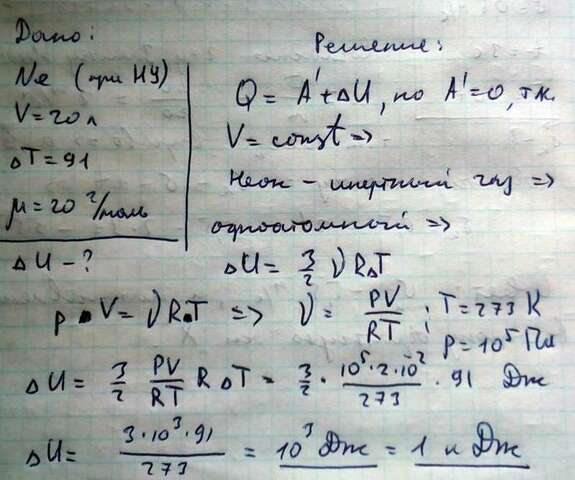 Дано:
Ne (при НУ)
V = 20 л
ΔT = 91
μ = 20 г/моль
ΔU - ?
Решение:
Q = A' + ΔU, но A' = 0, т.к.
V = const =>
Неон - инертный газ =>
одноатомный =>
ΔU = 3/2 νRΔT
p V = νR T => ν = PV/RT ; T = 273 К
P = 10⁵ Па
ΔU = 3/2 PV/RT R ΔT = 3/2 · 10⁵·2·10⁻²/273 · 91 Дж
ΔU = 3·10³·91/273 = 10³ Дж = 1 кДж